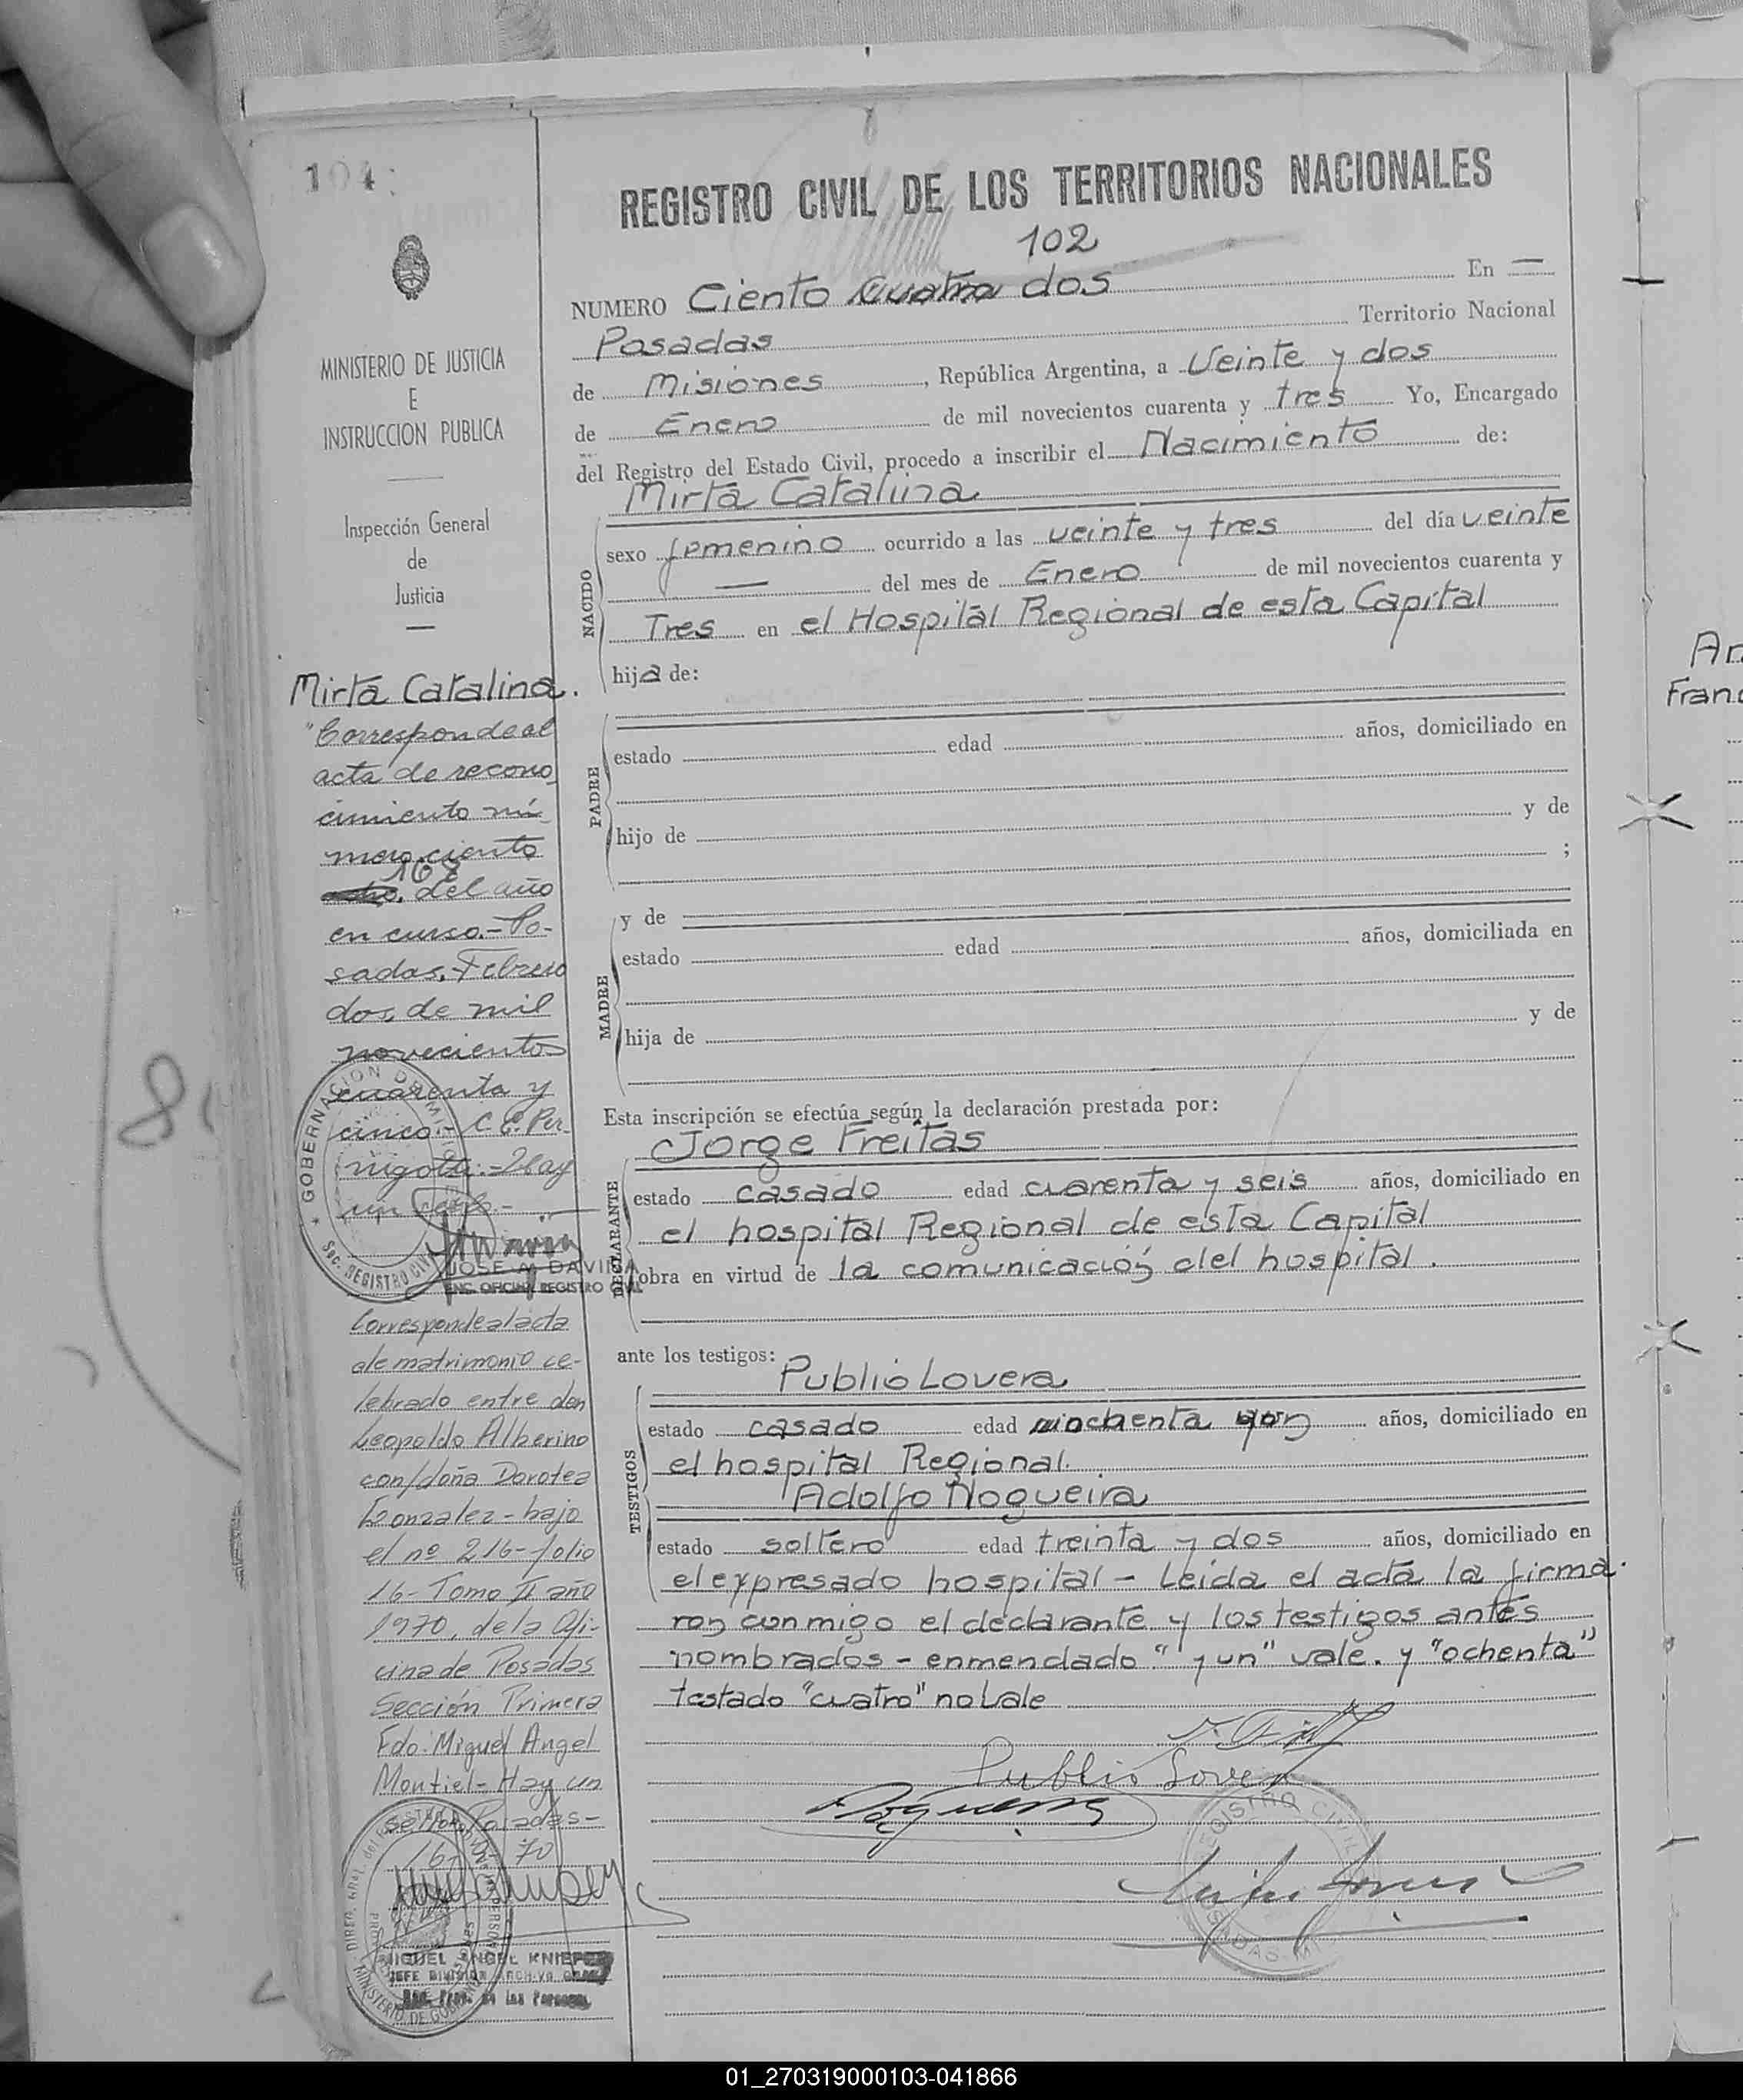 104
MINISTERIO DE JUSTICIA
E
INSTRUCCION PUBLICA
Inspección General
de
Justicia
Mirta Catalina.
"Corresponde al
acta de recono
cimiento nú-
mero ciento
168
del año
en curso.- Po-
sadas, Febrero
dos, de mil
novecientos
cuarenta y
cinco.- C. E. Per-
nigotti.- Hay
un sello.-
GOBERNACION DE MI
Sec. REGISTRO CIVIL
JOSE M. DAVIÑA
ENC. OFICINA REGISTRO CIVIL
Corresponde al acta
de matrimonio ce-
lebrado entre don
Leopoldo Alberino
con/doña Dorotea
Gonzalez - bajo
el nº 216 - folio
16 - Tomo II año
1970, de la Ofi-
cina de Posadas
Sección Primera
Fdo: Miguel Angel
Montiel - Hay un
sello. Posadas -
70
MIGUEL ANGEL KNIEPE
JEFE DIVISION ARCHIVO GRAL
MINISTERIO DE GOBIERNO
REGISTRO CIVIL DE LOS TERRITORIOS NACIONALES
102
NUMERO Ciento cuatro dos En —
Posadas Territorio Nacional
de Misiones, República Argentina, a Veinte y dos
de Enero de mil novecientos cuarenta y tres Yo, Encargado
del Registro del Estado Civil, procedo a inscribir el Nacimiento de:
Mirta Catalina
NACIDO
sexo femenino ocurrido a las veinte y tres del día veinte
— del mes de Enero de mil novecientos cuarenta y
Tres en el Hospital Regional de esta Capital
hija de:
PADRE
estado edad años, domiciliado en
hijo de y de
;
y de
MADRE
estado edad años, domiciliada en
hija de y de
Esta inscripción se efectúa según la declaración prestada por:
Jorge Freitas
DECLARANTE
estado casado edad cuarenta y seis años, domiciliado en
el hospital Regional de esta Capital
obra en virtud de la comunicación del hospital.
ante los testigos:
Publio Lovera
TESTIGOS
estado casado edad ochenta y un años, domiciliado en
el hospital Regional.
Adolfo Nogueira
estado soltero edad treinta y dos años, domiciliado en
el expresado hospital - Leida el acta la firma.
ron conmigo el declarante y los testigos antes
nombrados - enmendado "y un" vale. y "ochenta"
testado "cuatro" no vale
Publio Lovera
Nogueira
REGISTRO CIVIL
Fran
01_270319000103-041866